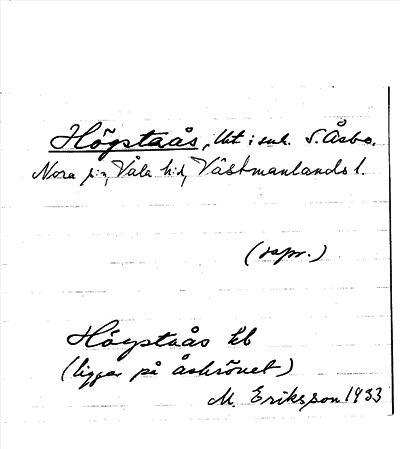 Högstaås, Ut i enh. S. Åsbo.
Nora sn, Våla hd, Västmanlands l.
(sapr.)
Högstaås Kb
(ligger på åskrönet)
M. Eriksson 1933